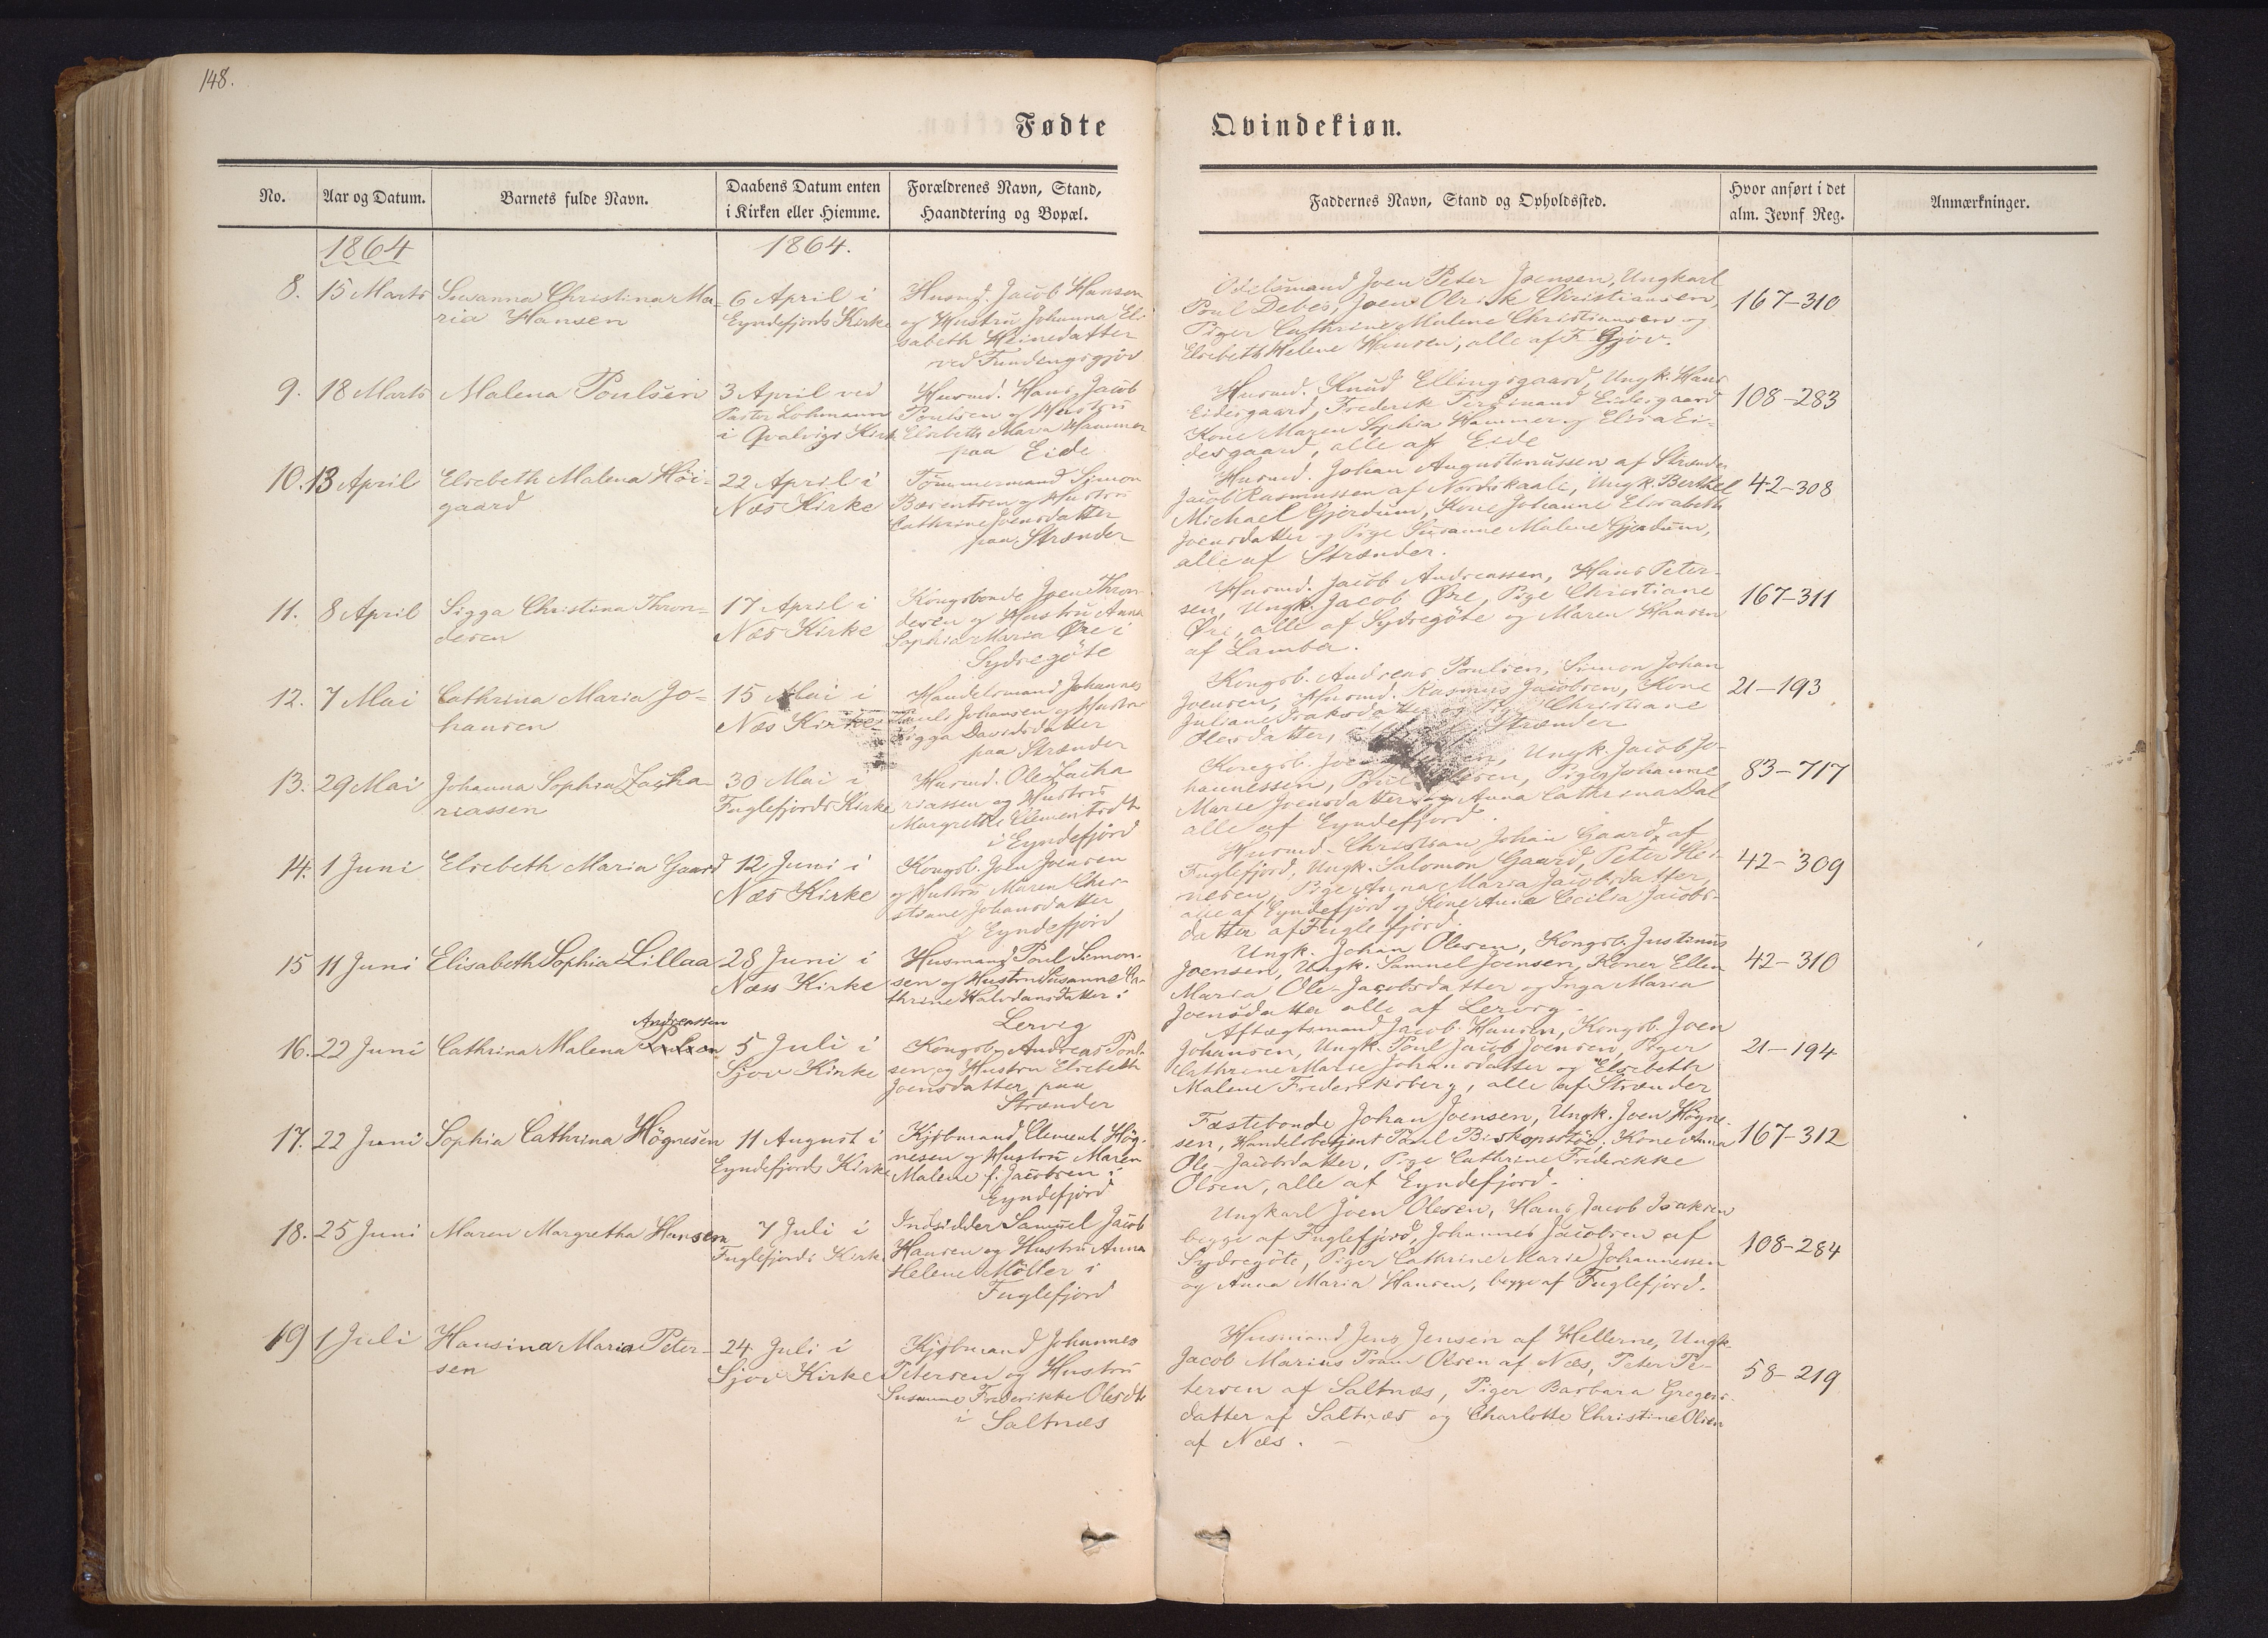 148.
Fødte
Qvindekiøn.
No.
Aar og Datum.
Barnets fulde Navn.
Daabens Datum enten
i Kirken eller Hiemme.
Forældrenes Navn, Stand,
Haandtering og Bopæl.
Faddernes Navn, Stand og Opholdssted.
Hvor anført i det
alm. Jevnf Reg.
Anmærkninger.
1864
1864.
8.
15 Marts
Susanna Christina Ma-
ria Hansen
6 April i
Eyndefjords Kirke
Husmd. Jacob Hansen
og Hustru Johanna Eli
sabeth Heinedatter
ved Fundingsgjöv
Odelsmand Joen Peter Joensen, Ungkarl
Poul Debes, Joen Olrik Christiansen,
Piger Cathrine Malene Christiansen og
Elsebeth Helene Hansen, alle af F. Gjöv.
167-310
9.
18 Marts
Malena Poulsen
3 April ved
Pastor Lohmann
i Qvalvigs Kirk
Husmd. Hans Jacob
Poulsen og Hustru
Elsebeth Maria Hammer
paa Eide
Husmd. Knud Ellingsgaard, Ungk. Hans
Eidesgaard, Frederik Ferdinand Eidesgaard
Kone Maren Sophia Hammer og Elisa Ei-
desgaard, alle af Eide
108-283
10.
13 April
Elsebeth Malena Höi-
gaard
22 April i
Næs Kirke
Tömmermand Simon
Bærentsen og Hustru
Cathrine Joensdatter
paa Strænder
Husmd. Johan Augustinussen af Strænder
Jacob Rasmussen af Nordskaale, Ungk. Berthel
Michael Gjerdum, Kone Johanne Elisabeth
Joensdatter og Pige Susanne Malene Gjerdum,
alle af Strænder.
42-308
11.
8 April
Sigga Christina Thron-
desen
17 April i
Næs Kirke
Kongsbonde Joen Thron-
desen og Hustru Anna
Sophia Maria Øre i
Sydregöte
Husmd. Jacob Andreassen, Hans Peter-
sen, Ungk. Jacob Øre, Pige Christiane
Øre, alle af Sydregöte og Maren Hansen
af Lamba.
167-311
12.
7 Mai
Cathrina Maria Jo-
hansen
15 Mai i
Næs Kirke
Handelsmand Johannes
Pauli Johansen og Hustru
Sigga Davidsdatter
paa Strænder
Kongsb. Andreas Poulsen, Simon Johan
Joensen, Husmd. Rasmus Jacobsen, Kone
Juliane Isaksdatter og Pige Christiane
Olesdatter, Strænder
21-193
13.
29 Mai
Johanna Sophia Zacha-
riassen
30 Mai i
Fuglefjords Kirke
Husmd. Ole Zacha
riassen og Hustru
Margrethe Clementsdt
i Eyndefjord
Kongsb. Joen Ungk. Jacob Jo-
hannessen, Piger Johanne
Marie Joensdatter og Anna Cathrina Dal
alle af Eyndefjord.
83-717
14.
1 Juni
Elsebeth Maria Gaard
12 Juni i
Næs Kirke
Kongsb. Joen Joensen
og Hustru Maren Chri-
stiane Johansdatter
i Eyndefjord
Husmd. Christian Johan Gaard, af
Fuglefjord, Ungk. Salomon Gaard, Peter Hei-
nesen, Pige Anna Maria Jacobsdatter,
alle af Eyndefjord og Kone Anna Cecilia Jacobs-
datter af Fuglefjord.
42-309
15
11 Juni
Elisabeth Sophia Lillaa
28 Juni i
Næss Kirke
Husmand Poul Simon-
sen og Hustru Susanne Ca-
thrine Halvdansdatter i
Lervig
Ungk. Johan Olesen, Kongsb. Justinus
Joensen, Ungk. Samuel Joensen, Koner Ellen
Maria Ole-Jacobsdatter og Inga Maria
Joensdatter alle af Lervig.
42-310
Andreassen
16.
22 Juni
Cathrina Malena
5 Juli i
Sjov Kirke
Kongsb. Andreas Poul-
sen og Hustru Elsebeth
Joensdatter paa
Strænder
Aftægtsmand Jacob Hansen, Kongsb. Joen
Johansen, Ungk. Poul Jacob Joensen, Piger
Cathrine Marie Johansdatter og Elsebeth
Malene Frederiksberg, alle af Strænder
21-194
17.
22 Juni
Sophia Cathrina Högnesen
11 August i
Eyndefjords Kirke
Kjöbmand Clement Hög-
nesen og Hustru Maren
Malene f. Jacobsen i
Eyndefjord
Fæstebonde Johan Joensen, Ungk. Joen Högne-
sen, Handelsbetjent Poul Biskopsstöe, Kone Anna
Ole-Jacobsdatter, Pige Cathrine Frederikke
Olsen, alle af Eyndefjord.
167-312
18.
25 Juni
Maren Margretha Hansen
7 Juli i
Fuglefjords Kirk.
Indsidder Samuel Jacob
Hansen og Hustru Anna
Helene Möller i
Fuglefjord
Ungkarl Joen Olesen, Hans Jacob Isaksen
begge af Fuglefjord, Johannes Jacobsen af
Sydregöte, Piger Cathrine Marie Johannessen
og Anna Maria Hansen, begge af Fuglefjord.
108-284
19
1 Juli
Hansina Maria Peter-
sen
24 Juli i
Sjov Kirke
Kjöbmand Johannes
Petersen og Hustru
Susanne Frederikke Olesdt
i Saltnæs
Husmand Jens Jensen af Hellerne, Ungk.
Jacob Marius Fram Olsen af Næs, Peter Pe-
tersen af Saltnæs, Piger Barbara Gregers-
datter af Saltnæs og Charlotte Christine Olsen
af Næs.
58-219